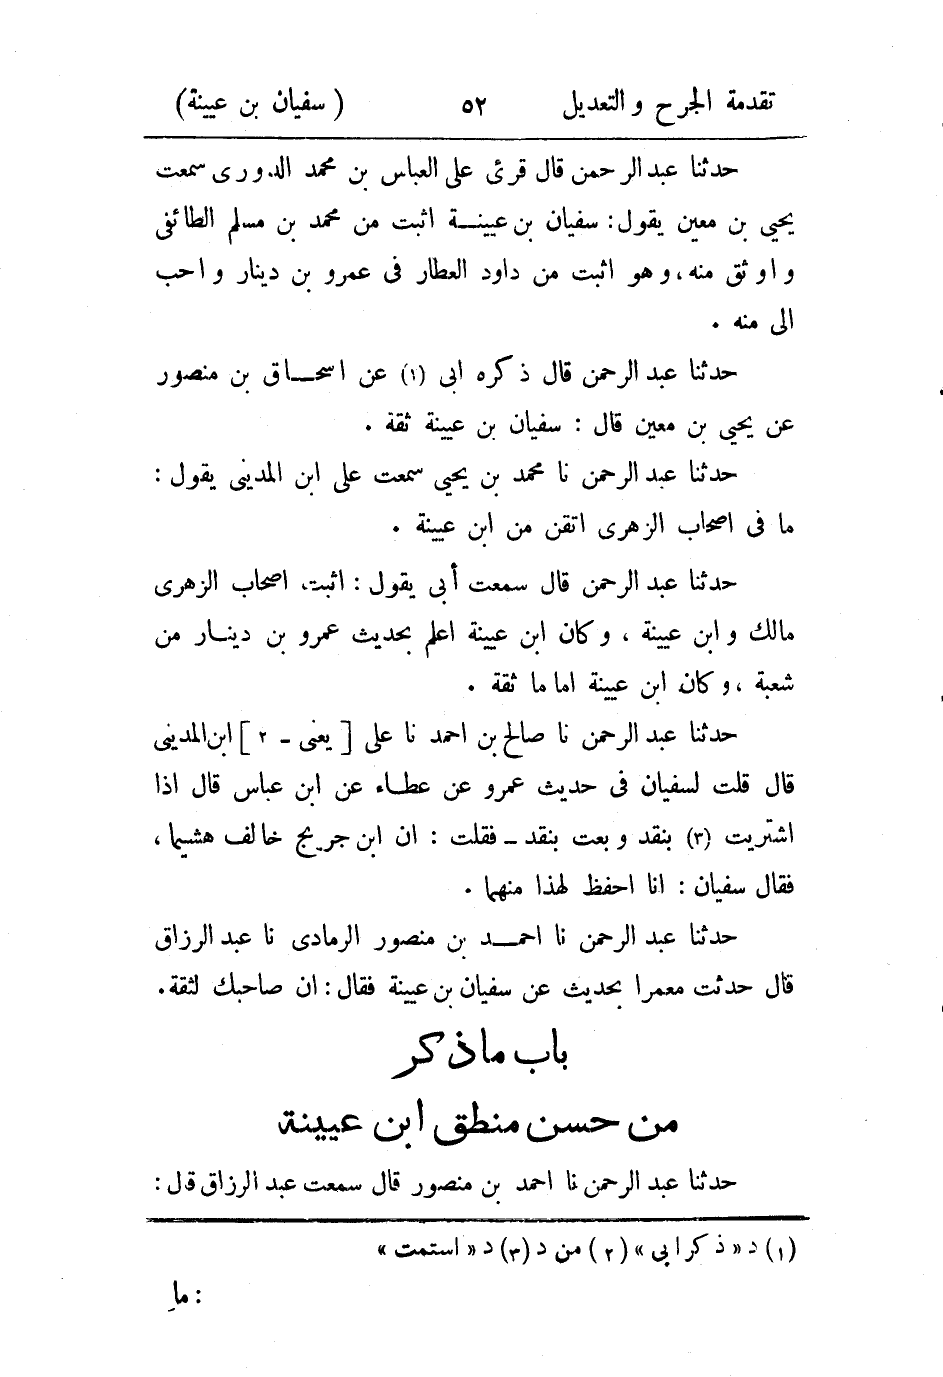 تقدمة الجرح و التعديل ٥٢ ( سفيان بن عيينة)
حدثنا عبد الرحمن قال قرئ على العباس بن محمد الدورى سمعت
يحيى بن معين يقول : سفيان بن عيينة اثبت من محمد بن مسلم الطائفى
و اوثق منه ، و هو اثبت من داود العطار فى عمرو بن دينار و احب
الى منه .
حدثنا عبد الرحمن قال ذكره ابى (١) عن اسحاق بن منصور
عن يحيى بن معين قال : سفيان بن عيينة ثقة .
حدثنا عبد الرحمن نا محمد بن يحيى سمعت على ابن المدينى يقول :
ما فى اصحاب الزهرى اتقن من ابن عيينة .
حدثنا عبد الرحمن قال سمعت أبى يقول : اثبت اصحاب الزهرى
مالك و ابن عيينة ، و كان ابن عيينة اعلم بحديث عمرو بن دينار من
شعبة ، و كان ابن عيينة اماما ثقة .
حدثنا عبد الرحمن نا صالح بن احمد نا على [ يعنى - ٢ ] ابن المدينى
قال قلت لسفيان فى حديث عمرو عن عطاء عن ابن عباس قال اذا
اشتريت (٣) بنقد و بعت بنقد - فقلت : ان ابن جريج خالف هشيما ،
فقال سفيان : انا احفظ لهذا منهما .
حدثنا عبد الرحمن نا احمد بن منصور الرمادى نا عبد الرزاق
قال حدثت معمرا بحديث عن سفيان بن عيينة فقال : ان صاحبك لثقة .
باب ما ذكر
من حسن منطق ابن عيينة
حدثنا عبد الرحمن نا احمد بن منصور قال سمعت عبد الرزاق قال :
(١) د « ذكر ابى » (٢) من د (٣) د « استمت »
: ما